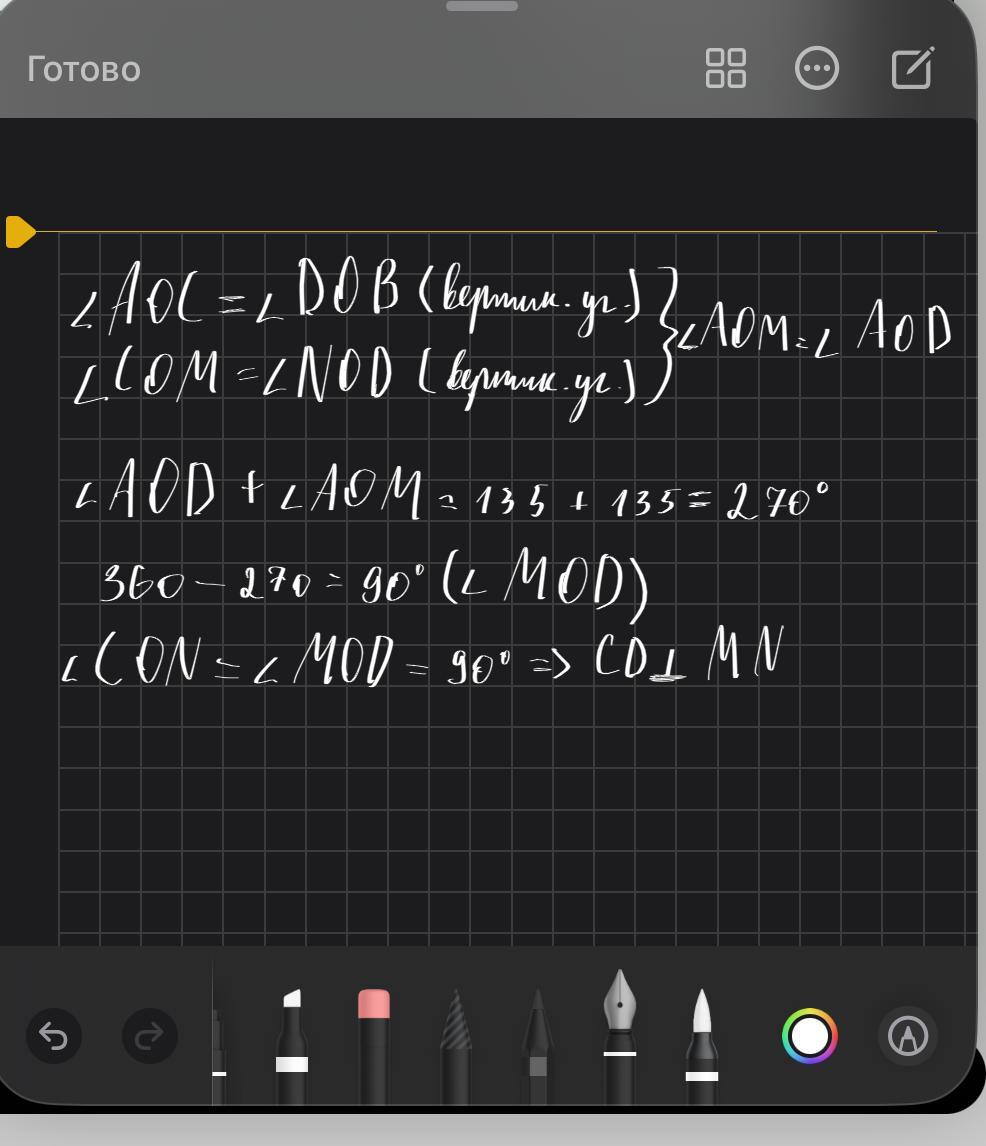 Готово
∠AOC = ∠DOB (вертик. уг.) } ∠AOM = ∠AOD
∠COM = ∠NOD (вертик. уг.)
∠AOD + ∠AOM = 135 + 135 = 270°
360 - 270 = 90° (∠MOD)
∠CON = ∠MOD = 90° => CD⊥MN